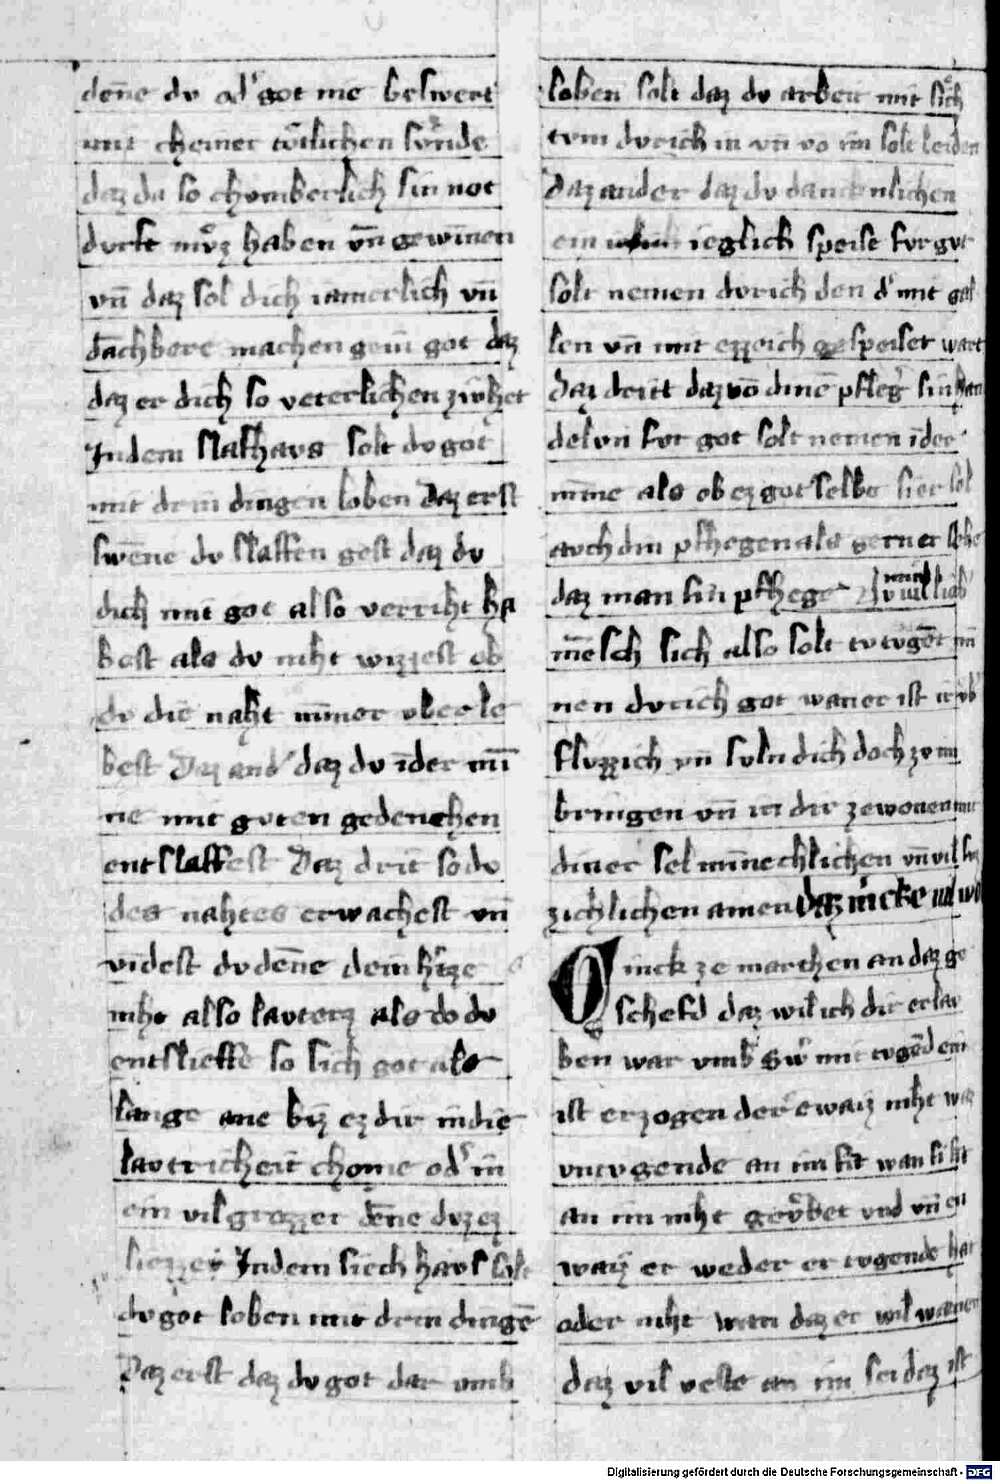 deñe dv od' got me beswert
mit cheiner tœilichen svnde
daz du so chvmberlich sin not
dvrft mv̊z haben vñ gewinnen
vñ daz sol dich iamerlich vñ
dāchbere machen gein got daz
daz er dich so veterlichen zivhet
Jn dem slafhavs solt dv got
mit drein dingen loben Daz erst
swēne dv slaffen gest daz dv
dich mit got also verriht ha
best als dv niht wizzest ob
dv die naht nimmer vberle
best Daz and' daz dv īder mī
ne mit gvten gedenchen
entslaffest Daz drit so dv
des nahtes erwachest vñ
vīdest dv deñe dein h'tze
niht also lavterz als do dv
entslieffe so sich got als
lange ane biz ez dir in die
lavtricheit chome od' in
ein vil grozzer dēne dvz ez
liezzest Jn dem siech havs solt
dv got loben mit drein dingē
Daz erst daz dv got dar vmb
loben solt daz dv arbeit mit sich
tvm dvrich in vñ vō im solt leiden
Daz ander daz dv dancknlichen
ein ieglich speise fvr gvt
solt nemen dvrich den d' mit gal
len vñ mit ezzeich gespeiset wart
Daz dritt daz vō dinē pfleg' sin han
delvn fvr got solt nemen ī der
minne als ob ez got selbe sier sol
avch din pfhegen als gerner sehe
daz man sin pfhege
vil lieb
mēsch sich also solt tv tvgēt mī
nen dvrich got waner ist ir vb'
flvzzich vñ svln dich doch zv im
bringen vñ in dir ze wonen mit
diner sel minnechlichen vñ vil
zichlichen amen Daz
Qinck ze marchen an daz ge
scheft daz wil ich dir erlav
ben war vmb Sw' mit tvgēd ein
ist erzogen der ewaiz niht waz
vntvgende an im sit wan si sit
an im niht gevbet vnd vñ en
waiz er weder er tvgende hat
oder niht wan daz er wil wænen
daz vil veste an im sei daz ist
Digitalisierung gefördert durch die Deutsche Forschungsgemeinschaft - DFG